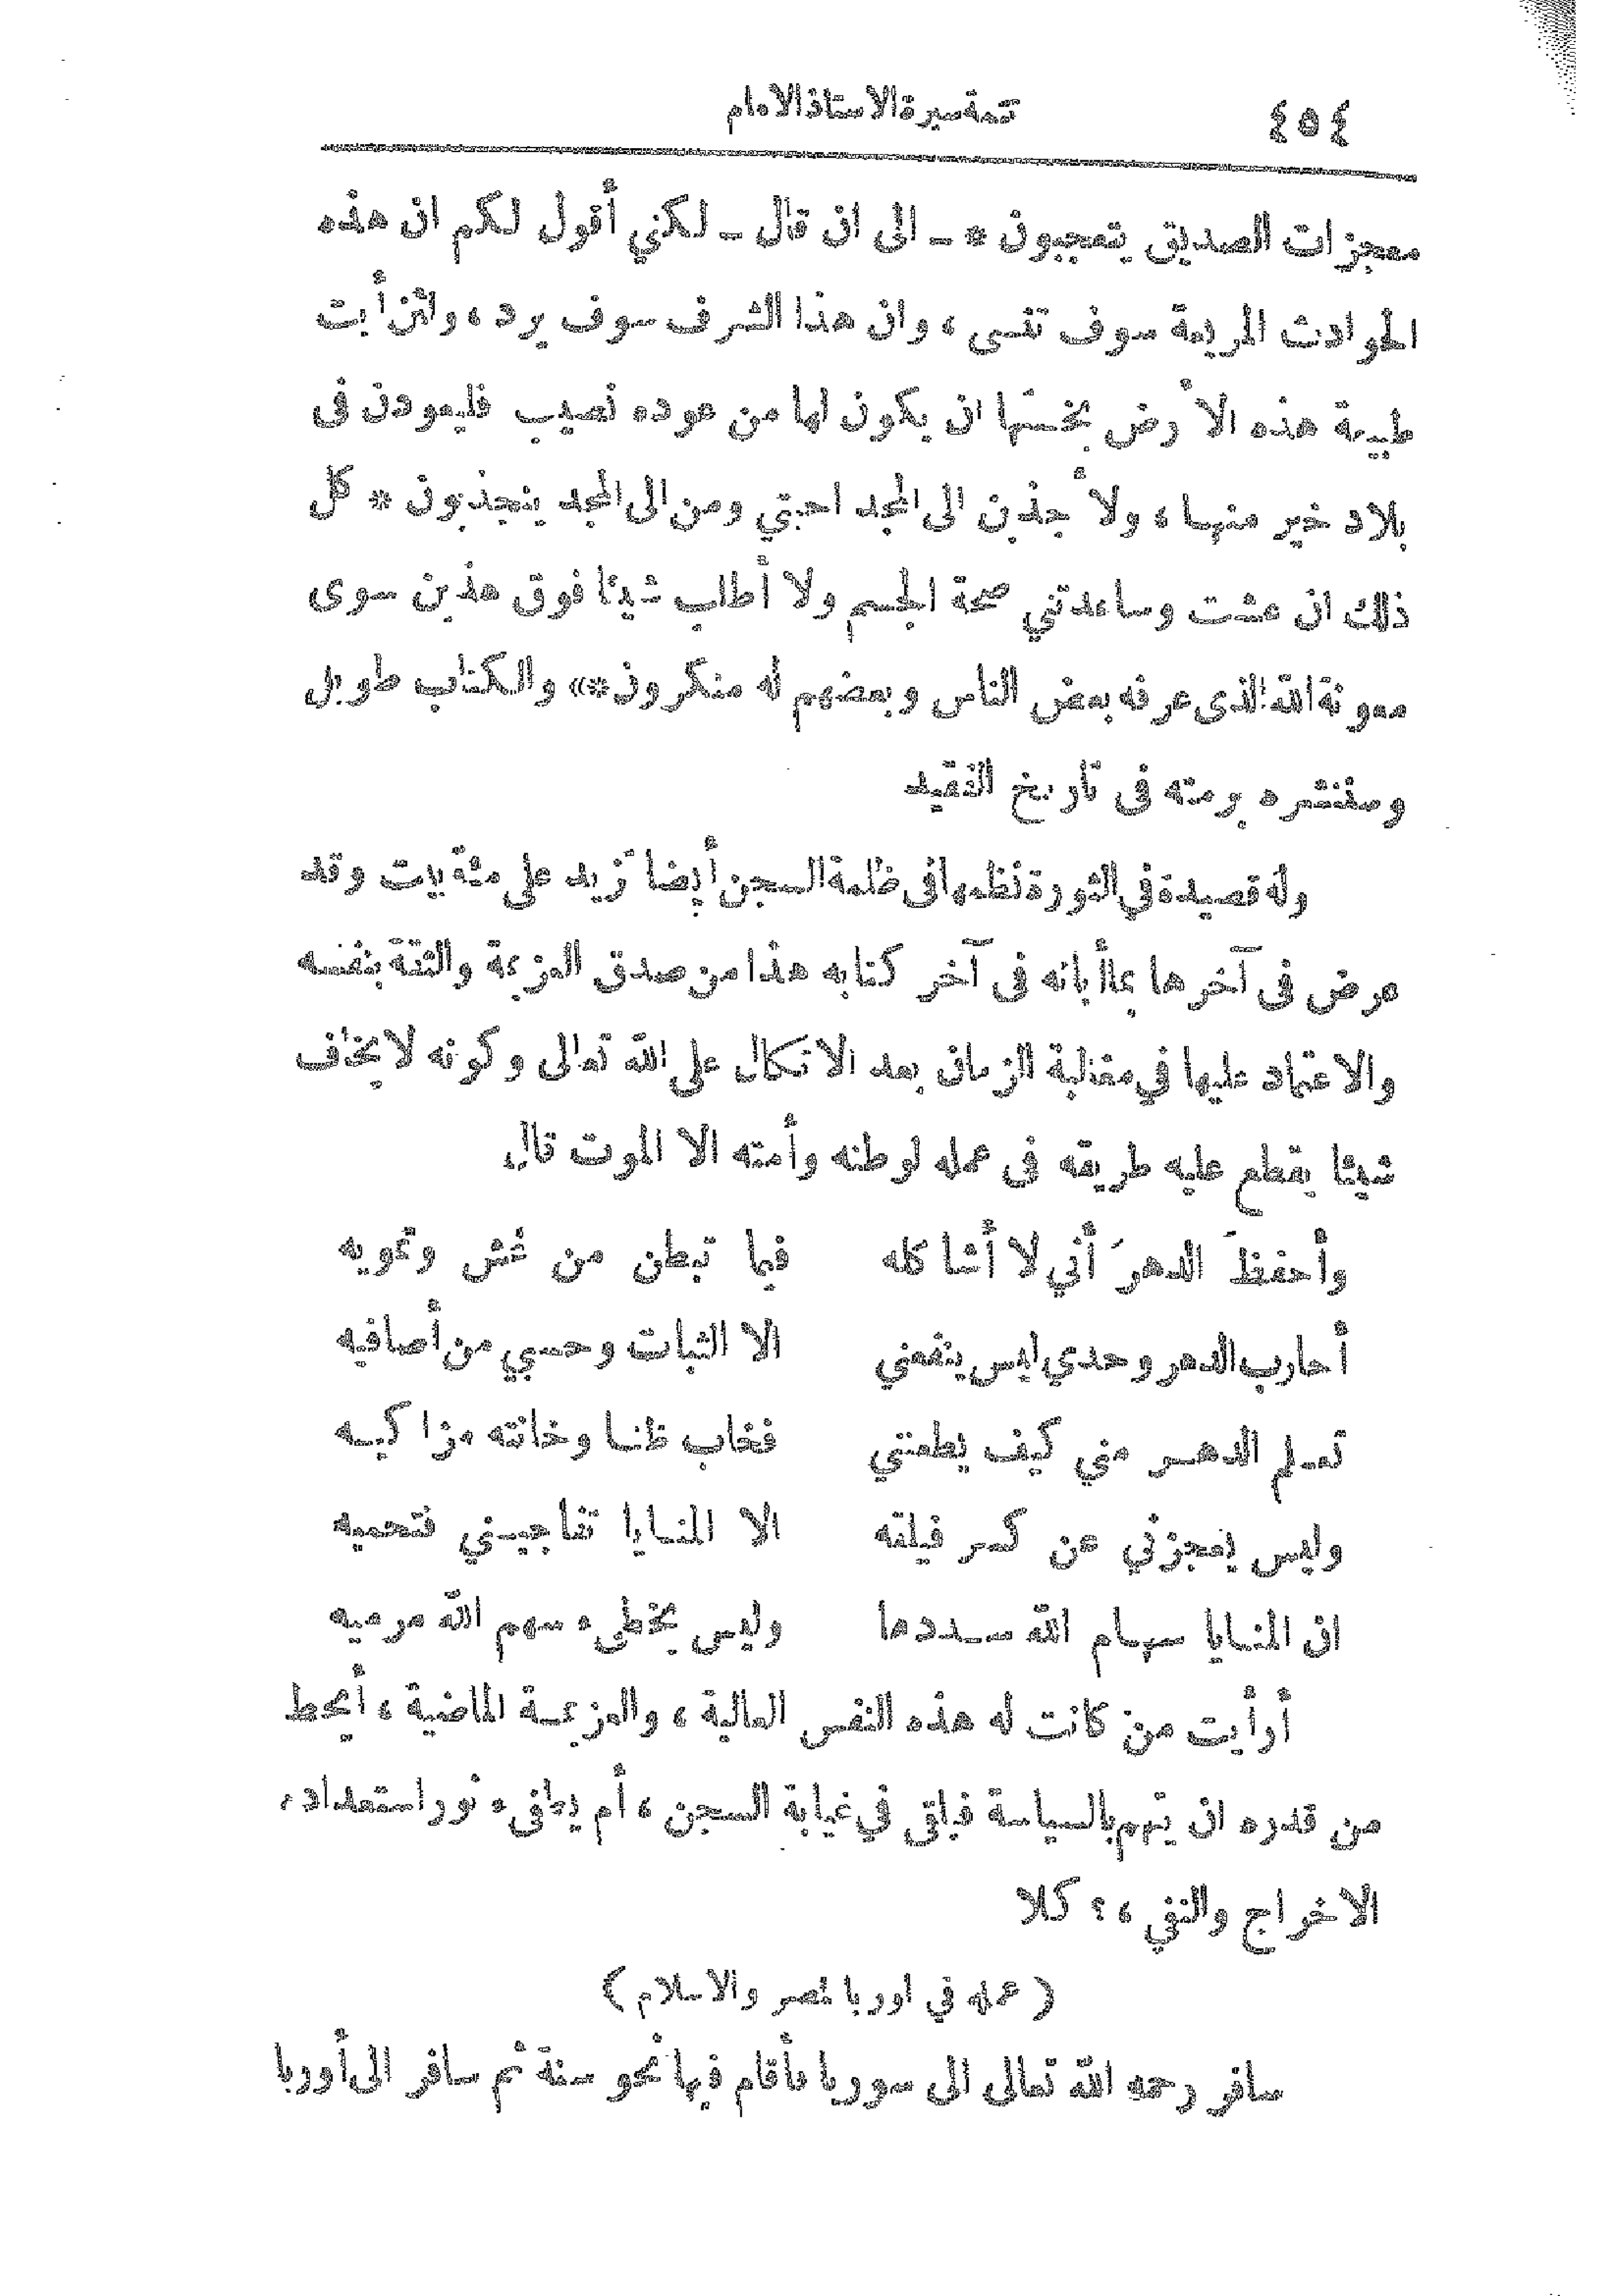 ٤٥٤
تتمة سيرة الاستاذ الامام
معجزات الصديق يتعجبون * ــ الى ان قال ــ لكني أقول لكم ان هذه
الحوادث المريعة سوف تنسى ، وان هذا الشرف سوف يرد ، ولئن أبت
طبيعة هذه الأرض بخستها ان يكون لها من عوده نصيب فليعودن فى
بلاد خير منها ، ولأجذبن الى المجد احبتي ومن الى المجد ينجذبون * كل
ذلك ان عشت وساعدتني صحة الجسم ولا أطلب شيئا فوق هذين سوى
معونة الله الذى عرفه بعض الناس وبعضهم له منكرون *» والكتاب طويل
وسننشره برمته فى تاريخ الفقيد
وله قصيدة في الثورة نظمها فى ظلمة السجن أيضا تزيد على مئة بيت وقد
عرض فى آخرها بما أبانه فى آخر كتابه هذا من صدق العزيمة والثقة بنفسه
والاعتماد عليها في مغالبة الزمان بعد الاتكال على الله تعالى وكونه لا يخاف
شيئا يقطع عليه طريقه فى عمله لوطنه وأمته الا الموت قال
وأحفظَ الدهرَ أني لا أشاكله فيما تبطن من غش وتمويه
أحارب الدهر وحدي ليس ينفعني الا الثبات وحسبي من أصافيه
تعلم الدهر مني كيف يطعنني فخاب ظنا وخانته مزاكيه
وليس يعجزني عن كسر فيلقه الا المنايا تفاجيني فتحميه
ان المنايا سهام الله سددها وليس يخطىء سهم الله مرميه
أرأيت من كانت له هذه النفس العالية ، والعزيمة الماضية ، أيحط
من قدره ان يتهم بالسياسة فيلقى في غيابة السجن ، أم يطفىء نور استعداده
الاخراج والنفي ، ؟ كلا
( عمله في اوربا لمصر والاسلام )
سافر رحمه الله تعالى الى سوريا فأقام فيها نحو سنة ثم سافر الى أوربا